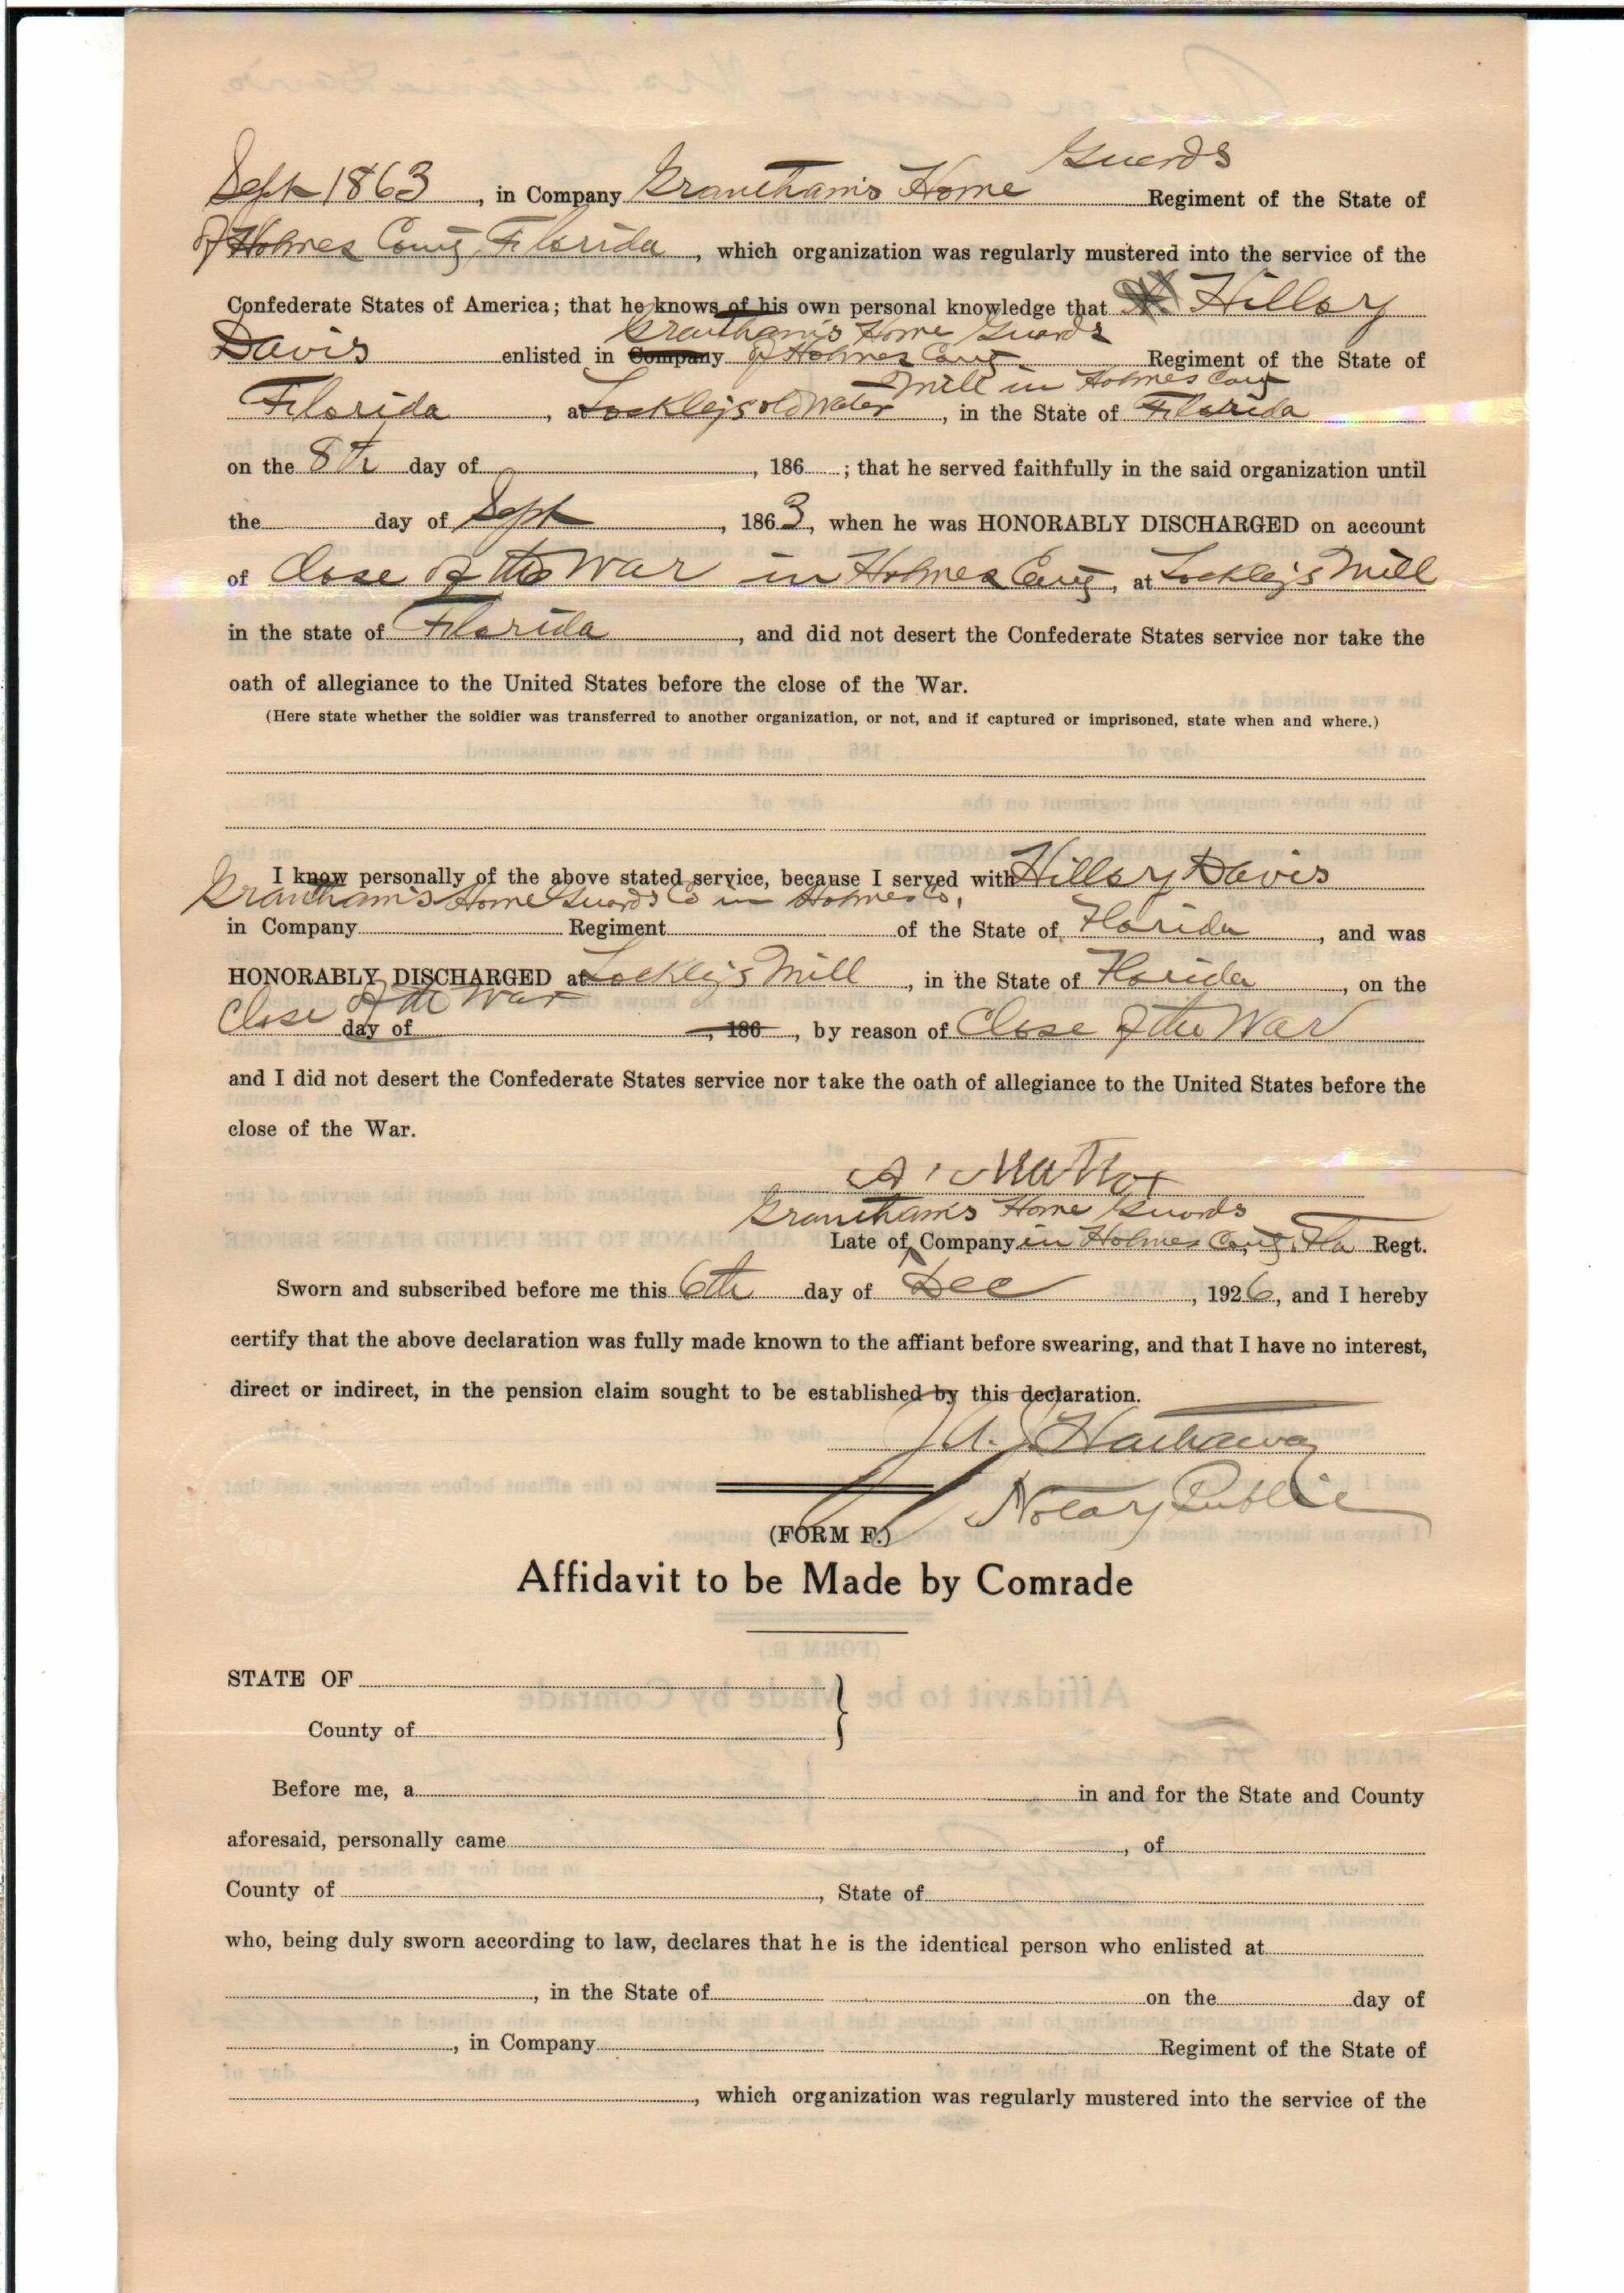 Guards
Sept 1863, in Company Grantham's Home Regiment of the State of
of Holmes County Florida, which organization was regularly mustered into the service of the
Confederate States of America; that he knows of his own personal knowledge that Hillary
Grantham's Home Guards
Davis enlisted in Company of Holmes County Regiment of the State of
Mill in Holmes County
Florida, at Lockley's old Water, in the State of Florida
on the 8th day of , 186 ; that he served faithfully in the said organization until
the day of Sept, 1863, when he was HONORABLY DISCHARGED on account
of Close of the War in Holmes County, at Lockley's Mill
in the state of Florida, and did not desert the Confederate States service nor take the
oath of allegiance to the United States before the close of the War.
(Here state whether the soldier was transferred to another organization, or not, and if captured or imprisoned, state when and where.)
I know personally of the above stated service, because I served with Hillary Davis
Grantham's Home Guards Co in Holmes Co,
in Company Regiment of the State of Florida, and was
HONORABLY DISCHARGED at Lockley's Mill, in the State of Florida, on the
Close of the War
day of , 186 , by reason of Close of the War
and I did not desert the Confederate States service nor take the oath of allegiance to the United States before the
close of the War.
Grantham's Home Guards
Late of Company in Holmes County, Fla Regt.
Sworn and subscribed before me this 6th day of Dec, 1926, and I hereby
certify that the above declaration was fully made known to the affiant before swearing, and that I have no interest,
direct or indirect, in the pension claim sought to be established by this declaration.
Hathaway
Notary Public
(FORM F.)
Affidavit to be Made by Comrade
STATE OF }
County of
Before me, a in and for the State and County
aforesaid, personally came , of
County of , State of
who, being duly sworn according to law, declares that he is the identical person who enlisted at
, in the State of on the day of
, in Company Regiment of the State of
, which organization was regularly mustered into the service of the